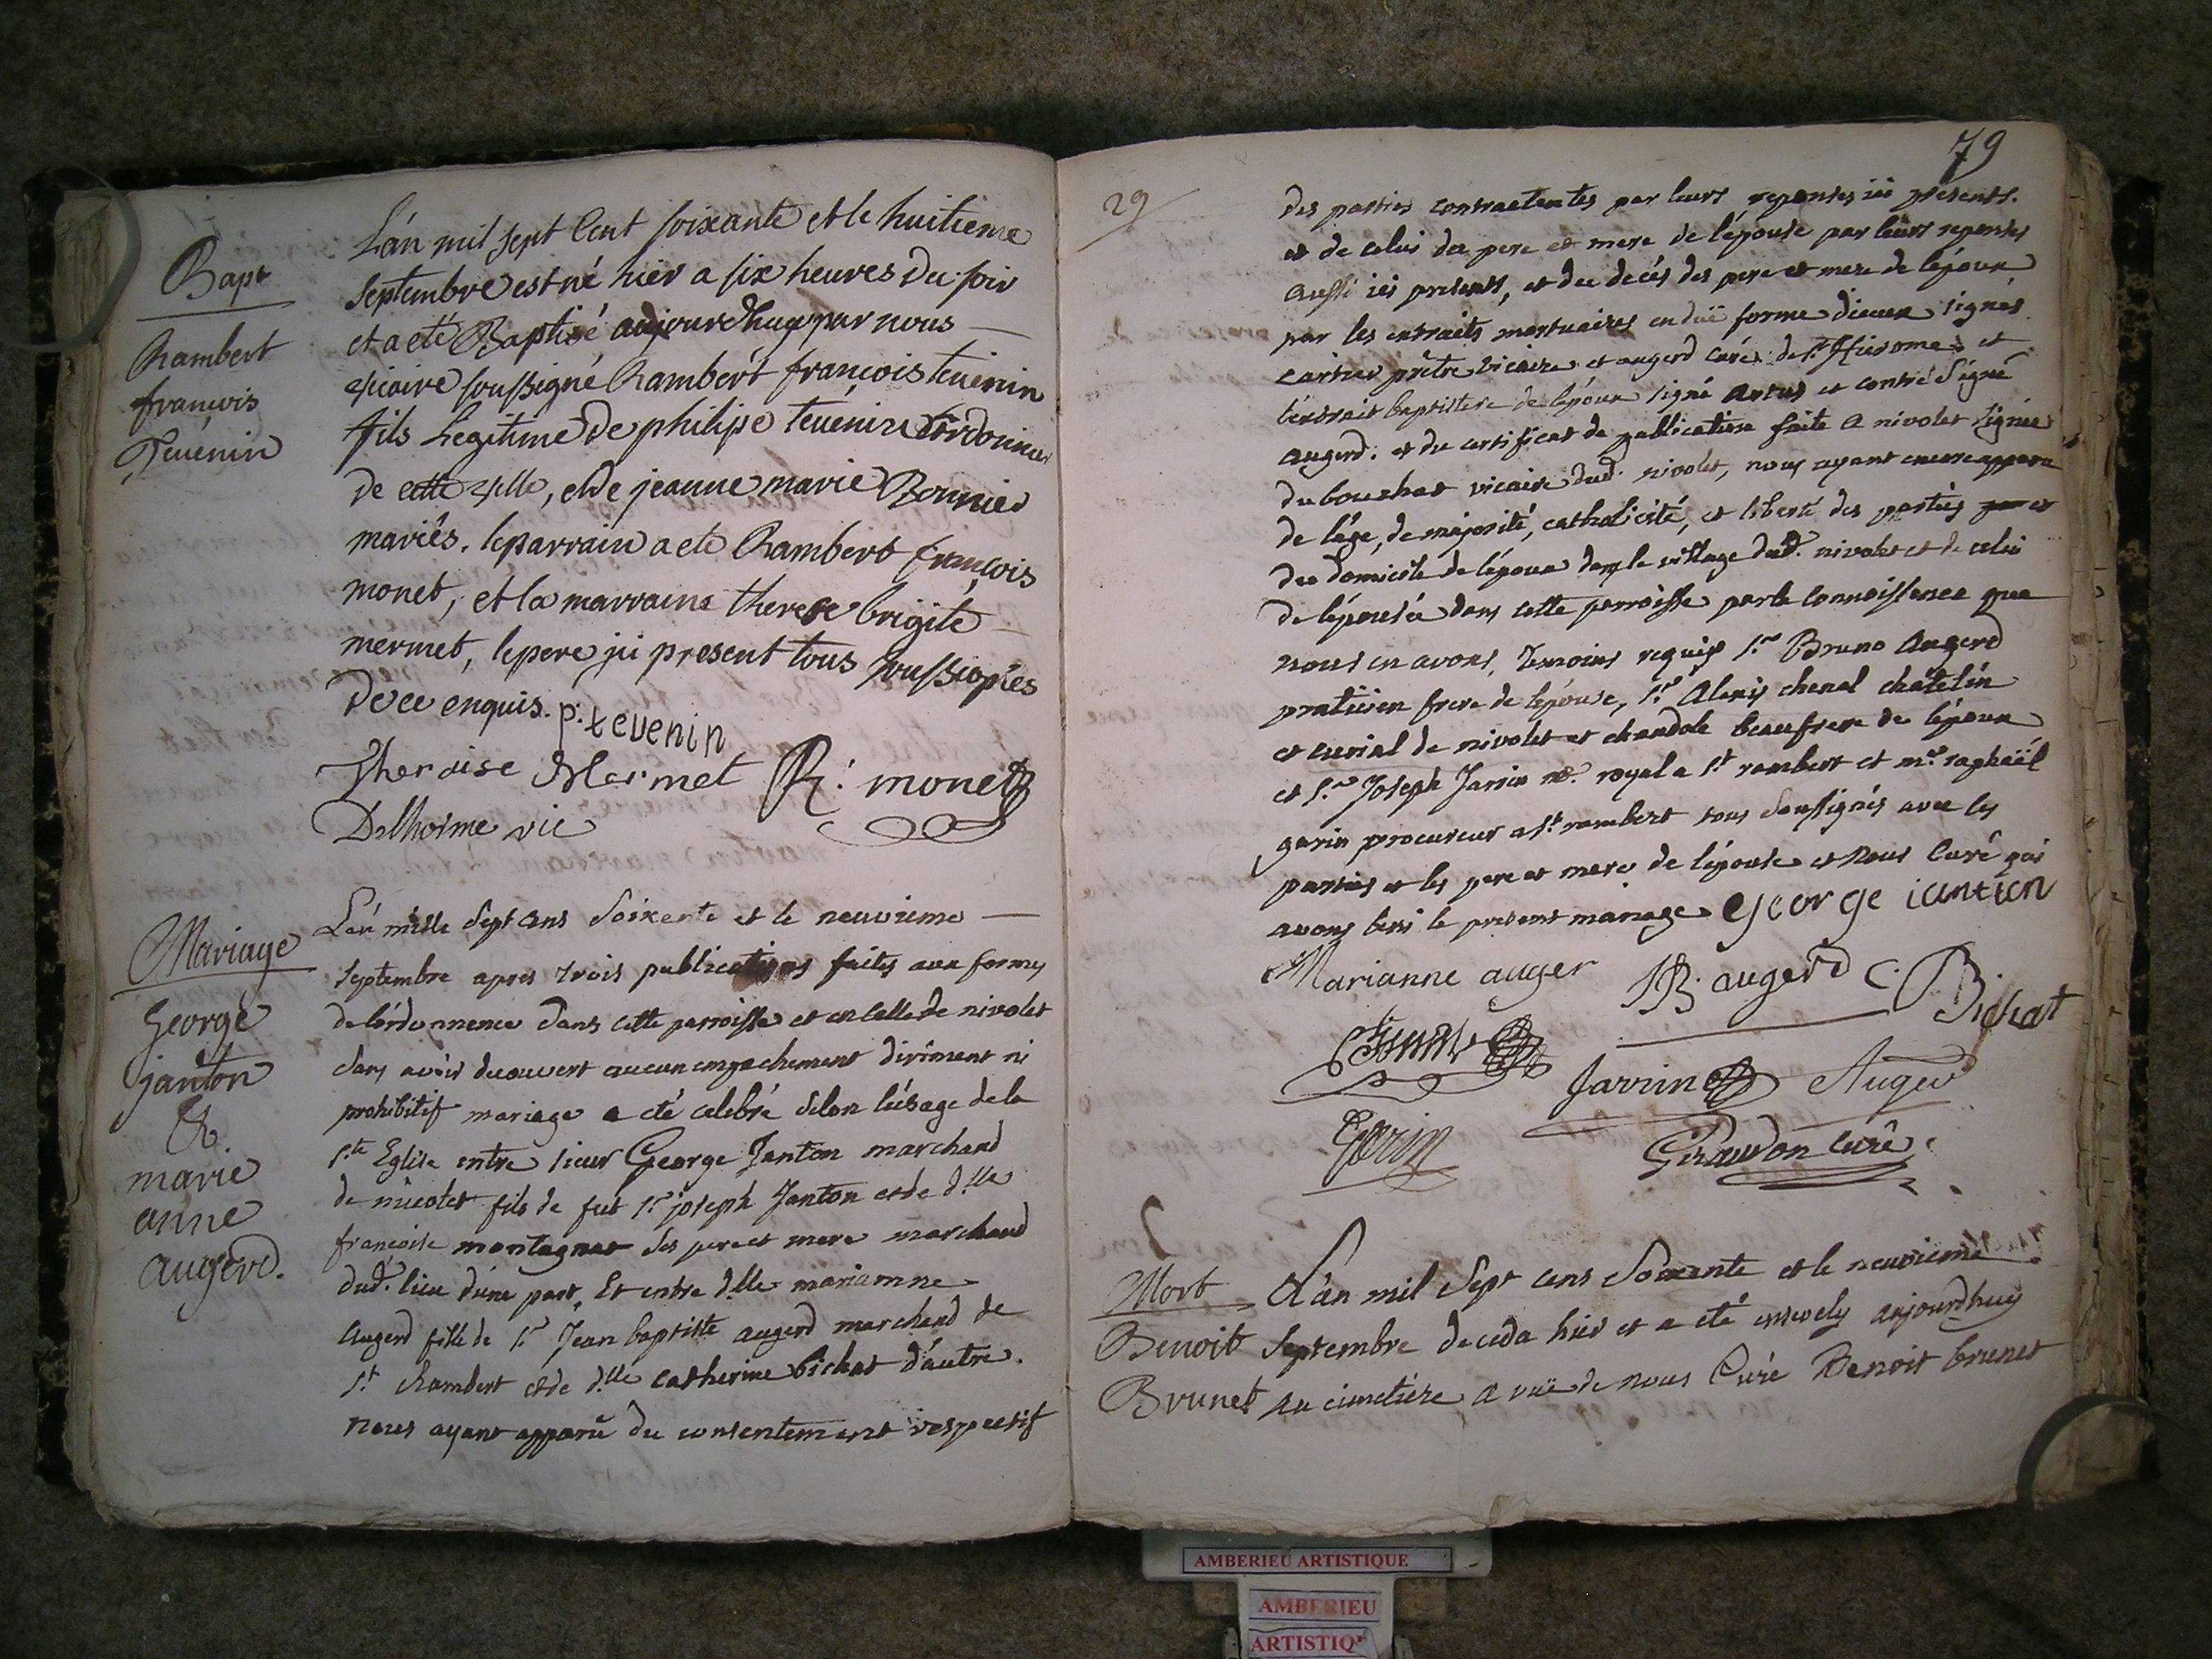 Bapt
Rambert
francois
Tevenin
L'an mil sept Cent soixante et le huitieme
septembre est né hier a six heures du soir
et a eté Baptisé aujourdhuy par nous
vicaire soussigné Rambert françois tevenin
fils Legitime de philipe tevenin Cordonnier
de cette ville, et de jeanne marie Bonnier
mariés. le parrain a eté Rambert françois
monet, et la marraine therese brigite
mermet, le pere ici present tous soussignés
de ce enquis. p. tevenin
Theraise Mermet R. monet
Delhorme vic
Mariage
George
janton
&
marie
anne
augerd.
L'an mille sept cens soixante et le neuvieme
septembre apres trois publications faites aux formes
de l'ordonnance dans cette parroisse et en celle de nivolet
sans avoir decouvert aucun empechement diriment ni
prohibitif mariage a eté celebré selon l'usage de la
Ste Eglise entre sieur George Janton marchand
de nivolet fils de feu Sr joseph Janton et de dlle
francoise montagnat ses pere et mere marchand
dud. lieu d'une part, Et entre dlle marianne
augerd fille de Sr Jean baptiste augerd marchand de
St Rambert et de dlle catherine bichat d'autre.
nous ayant apparu du consentement respectif
79
29
des parties contractantes par leurs reponses ici presents.
et de celui des pere et mere de l'épouse par leurs reponses
aussi ici presents, et du decés des pere et mere de l'époux
par les extraits mortuaires en duë forme d'iceux signés
cartier prêtre vicaire et augerd curé de St Hierome et
l'extrait baptistere de l'époux signé artus et contre signé
augerd. et du certificat de publication faite a nivolet signée
dubouchat vicaire dud. nivolet, nous ayant encore apparu
de l'áge, de majorité, catholicité, et liberté des parties par et
du domicile de l'époux dans le village dud. nivolet et de celui
de l'épouse dans cette parroisse par la connoissance que
nous en avons, temoins requis Sr Bruno Augerd
praticien frere de l'épouse, Sr Alexis chenal châtelin
et curial de nivolet et chandole beaufrere de l'époux
et Sr Joseph Jarrin nre. royal a St rambert et me. raphaël
garin procureur a St rambert tous soussignés avec les
parties et les pere et mere de l'épouse et nous Curé qui
avons beni le present mariage George ianton
Marianne auger JB. augerd C. Bichat
Jarrin Auger
Garin Giraudon Curé
Mort
Benoit
Brunet
L'an mil sept cens soixante et le neuvieme
septembre deceda hier et a eté ensevely aujourdhuy
au cimetiére a vuë de nous Curé Benoit brunet
AMBERIEU ARTISTIQUE
AMBERIEU
ARTISTIQ